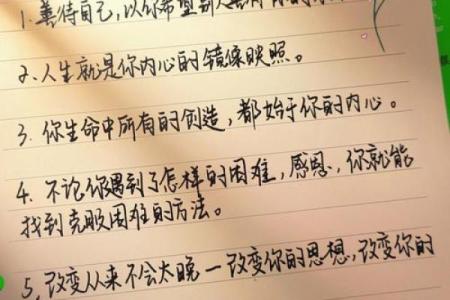 1.善待自己,以你希望别人善待你的
2.人生就是你内心的镜像映照。
3.你生命中所有的创造,都始于你的内心。
4.不论你遇到了怎样的困难,感恩,你就能
找到克服困难的方法。
5.改变从来不会太晚一改变你的思想,改变你的